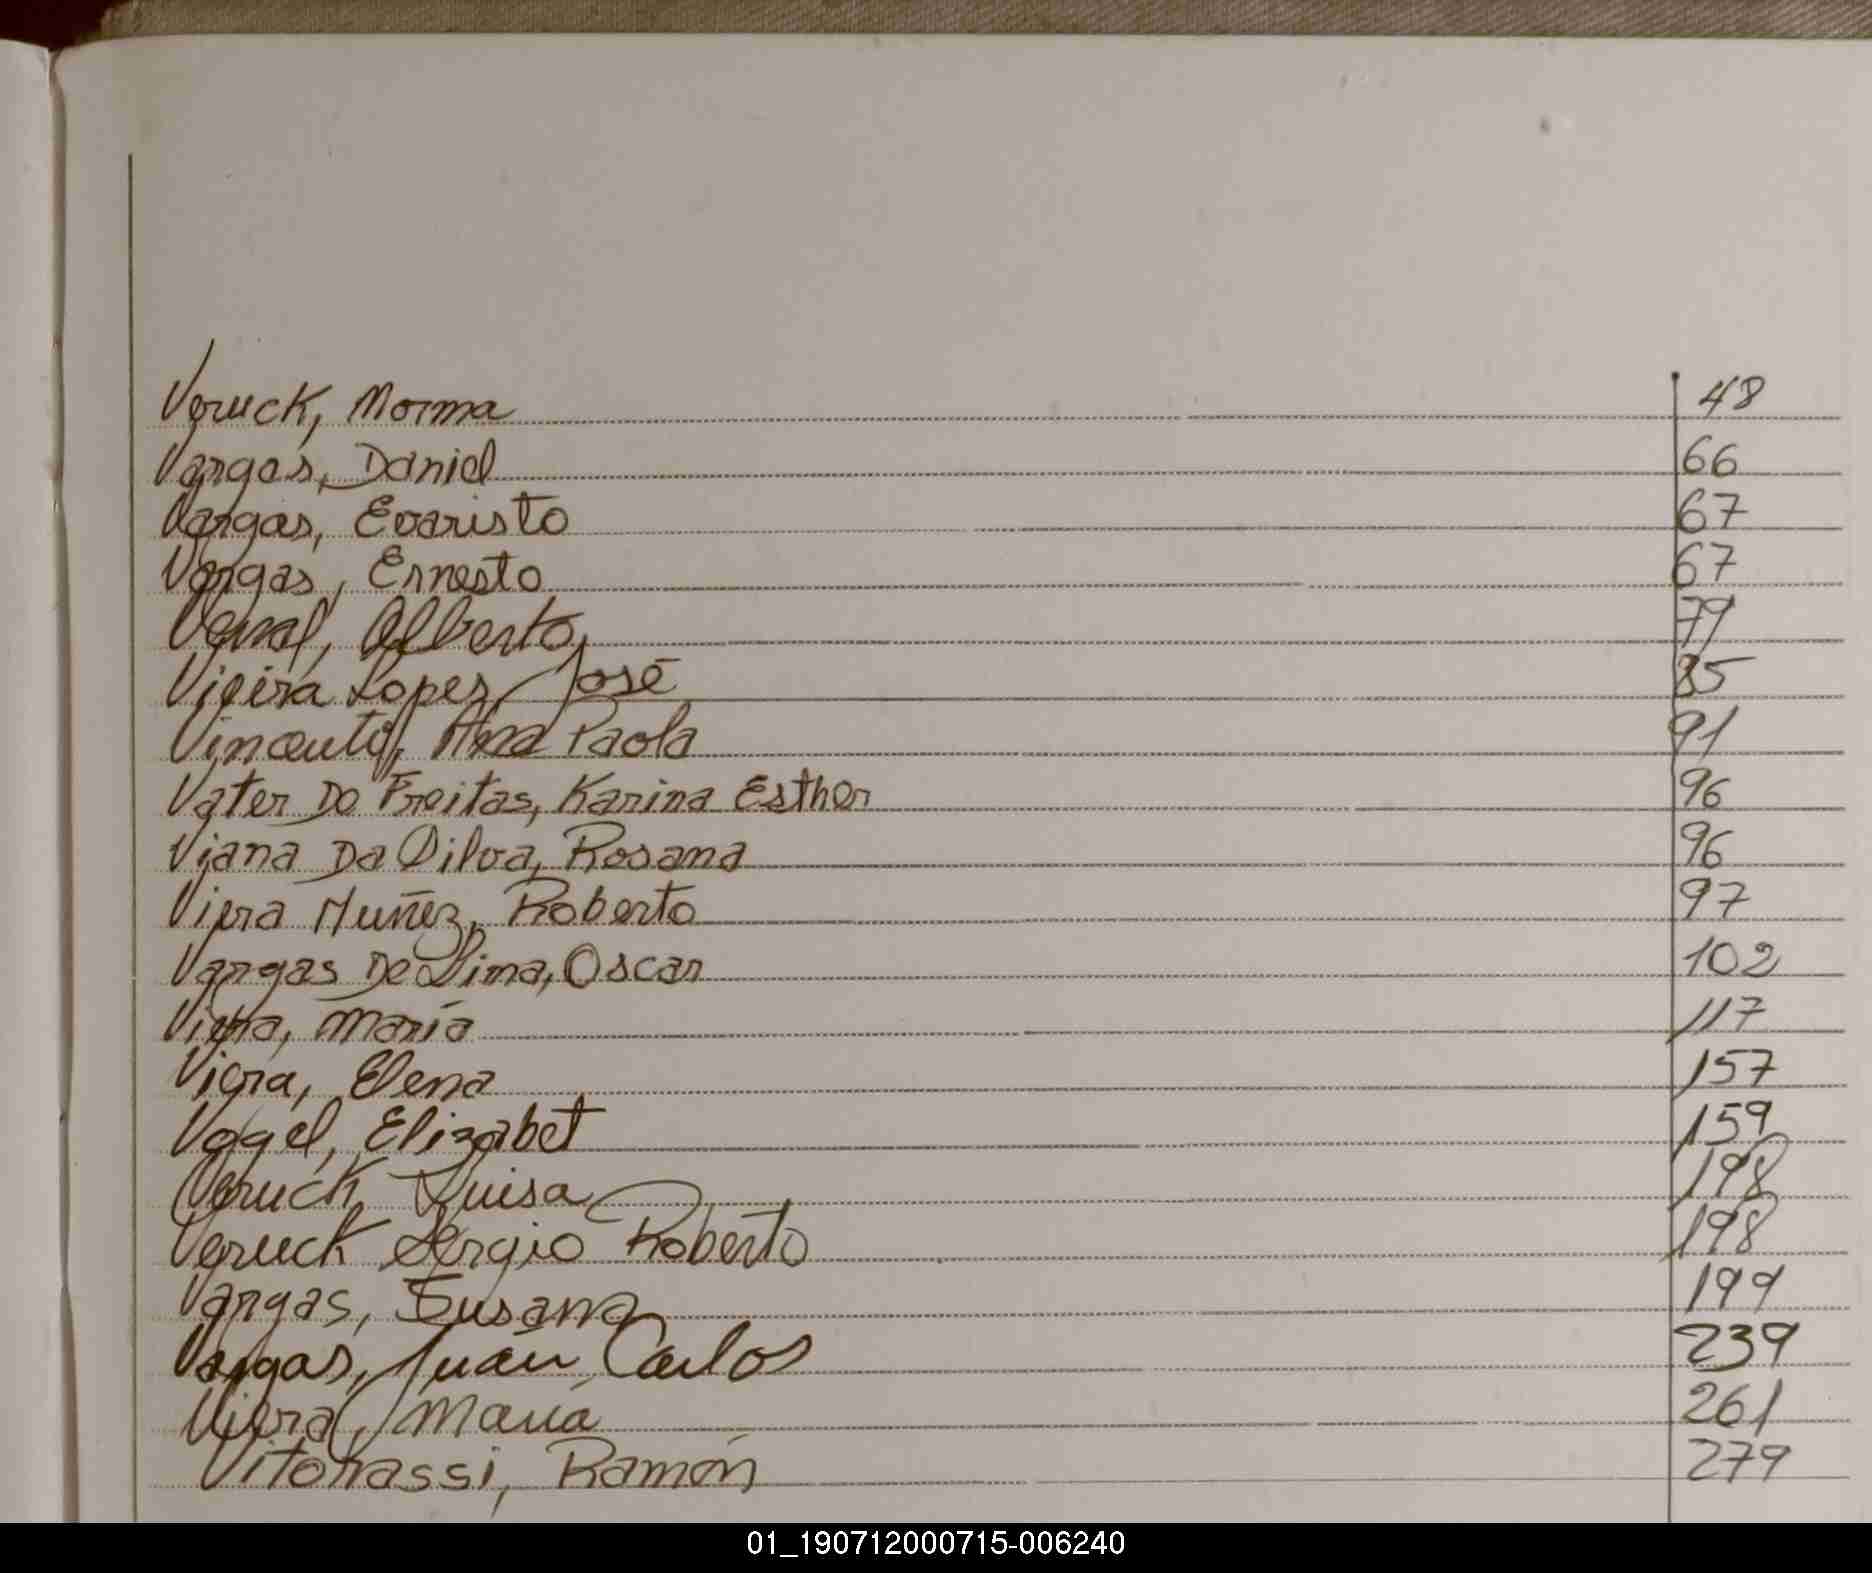 Veruck, Norma 48
Vargas, Daniel 66
Vargas, Evaristo 67
Vargas, Ernesto 67
Alberto 79
Vieira Lopez, José 85
Ana Paola 91
Vater De Freitas, Karina Esther 96
Viana Da Silva, Rosana 96
Viera Muñez, Roberto 97
Vargas De Lima, Oscar 102
Viera, María 117
Viera, Elena 157
Vogel, Elizabet 159
Veruck, Luisa 198
Veruck Sergio Roberto 198
Vargas, Susana 199
Vargas, Juan Carlos 239
Viera, María 261
Vitorassi, Ramón 279
01_190712000715-006240